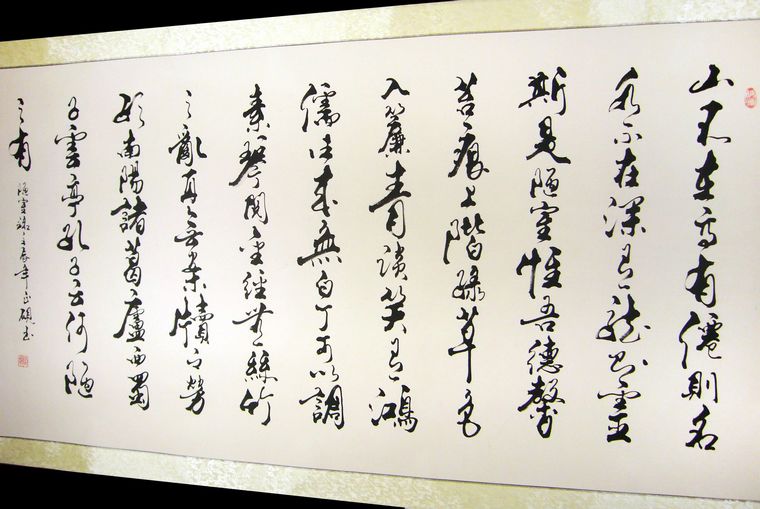 山不在高有僊則名
水不在深有龍則靈
斯是陋室惟吾德馨
苔痕上階綠草色
入簾青談笑有鴻
儒往來無白丁可以調
素琴閱金經無絲竹
之亂耳无案牘之勞
形南陽諸葛廬西蜀
子雲亭孔子云何陋
之有
陋室銘壬辰年正硯書